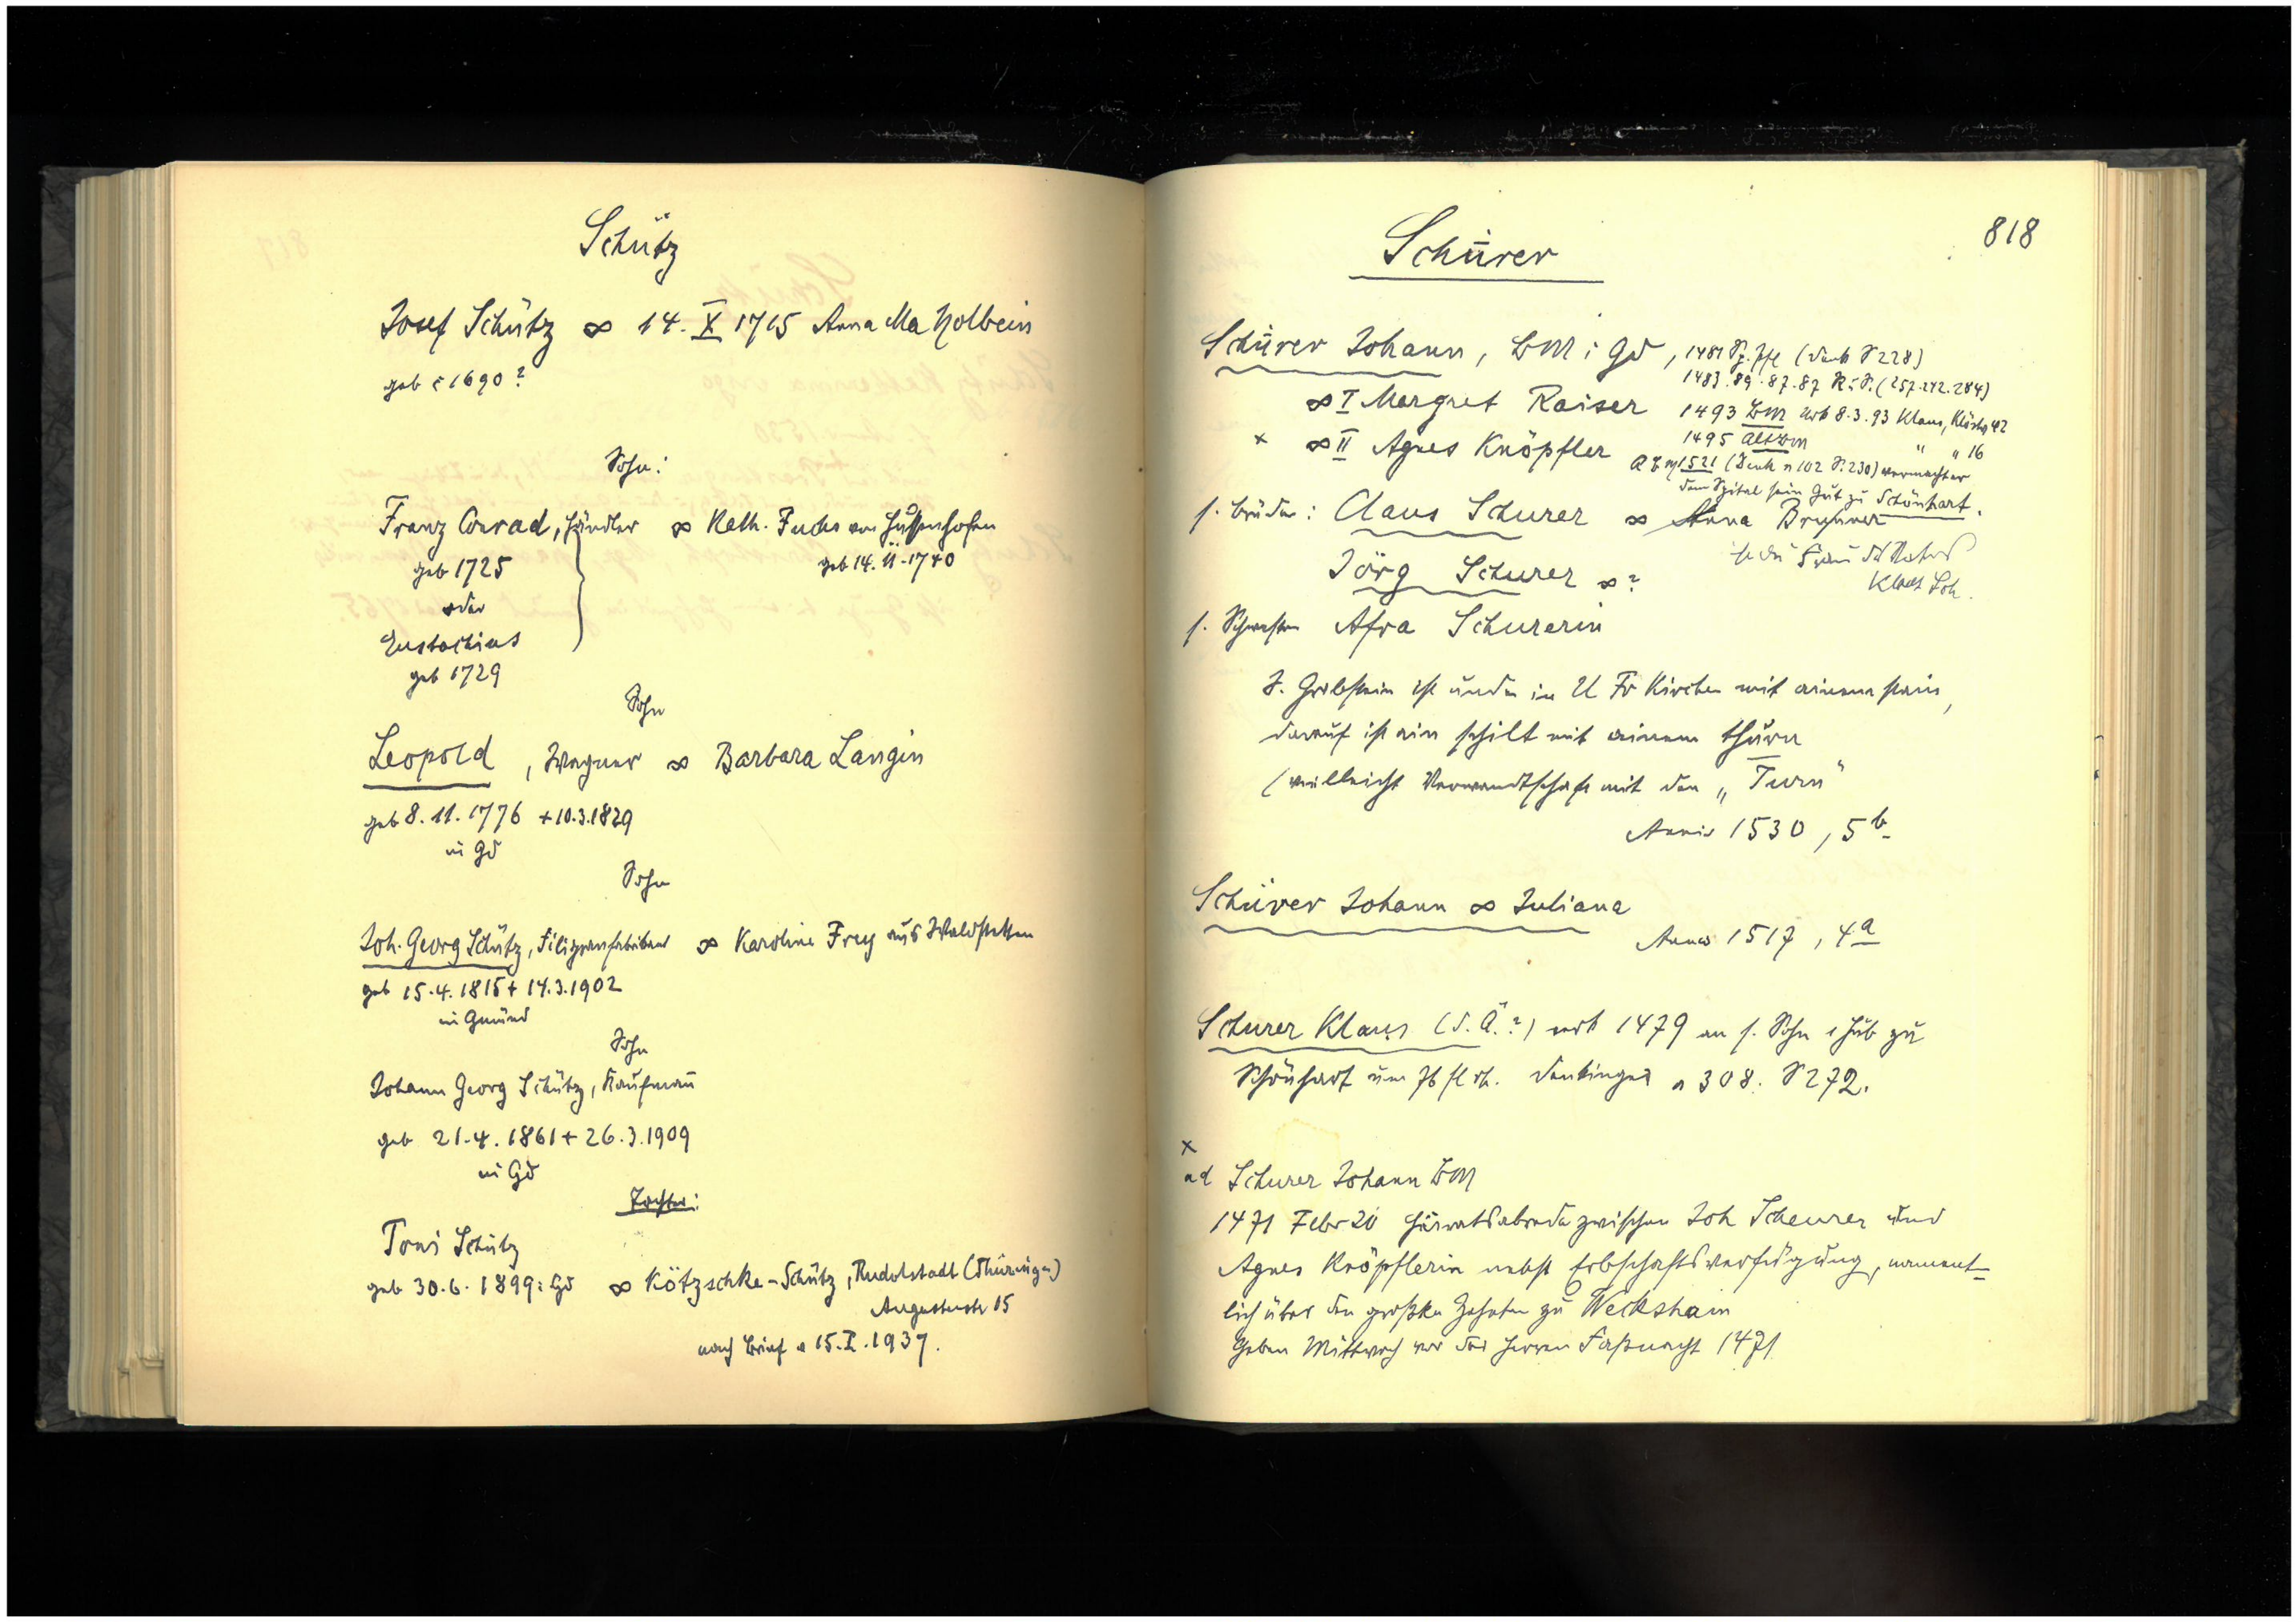 Schütz
Josef Schütz ∞ 14. X 1715 Anna Ma Holbein
geb c 1690?
Sohn:
Franz Conrad, Händler ∞ Kath. Fuchs von Hussenhofen
geb 1725 geb 14.11.1740
oder
Eustachius
geb 1729
Sohn
Leopold, Wagner ∞ Barbara Langin
geb 8.11.1776 + 10.3.1829
in Gd
Sohn
Joh. Georg Schütz, Filigranfabrikant ∞ Karoline Frey aus Waldstetten
geb 15.4.1815 + 14.3.1902
in Gmünd
Sohn
Johann Georg Schütz, Kaufmañ
geb 21.4.1861 + 26.3.1909
in Gd
Tochter:
Toni Schütz
geb 30.6.1899 i Gd ∞ Kötzschke-Schütz, Rudolstadt (Thüringen)
Augustenstr 15
nach Brief v 15.I.1937.
818
Schürer
Schürer Johann, BM i Gd, 1481 Sp. Pfl (Denk S 228)
1483.89.87.87 Ri S. (257.242.284)
∞ I Margret Raiser 1493 BM Urk 8.3.93 Klaus, Klösterg 42
1495 Altbm " " 16
x ∞ II Agnes Knöpfler
1521 (Denk n 102 S. 230) vermachter
dem Spital sein Gut zu Schönhart.
s. Brüder: Claus Schurer ∞ Anna Brunner
Jörg Schurer ∞?
s. Schwester Afra Schurerin
I. Grabstein ist under in U Fr Kirchen mit ainem stain,
darauf ist ain schilt mit ainem thurn
(vielleicht Verwandtschaft mit den „Turn"
Annis 1530, 5b
Schürer Johann ∞ Juliana
Annis 1517, 4a
Schurer Klaus (d. Ä.?) verk 1479 an s. Sohn 1 Hub zu
Schönhart um 76 fl rh. Denkinger n 308. S 272.
x
ad Schurer Johann BM
1471 Febr 20 Heiratsabrede zwischen Joh Scheurer und
Agnes Knöpflerin nebst Erbschaftsverfügung, nament-
lich über den großen Zehnten zu Weckshain
Geben Mittwoch vor der Herren Faßnacht 1471